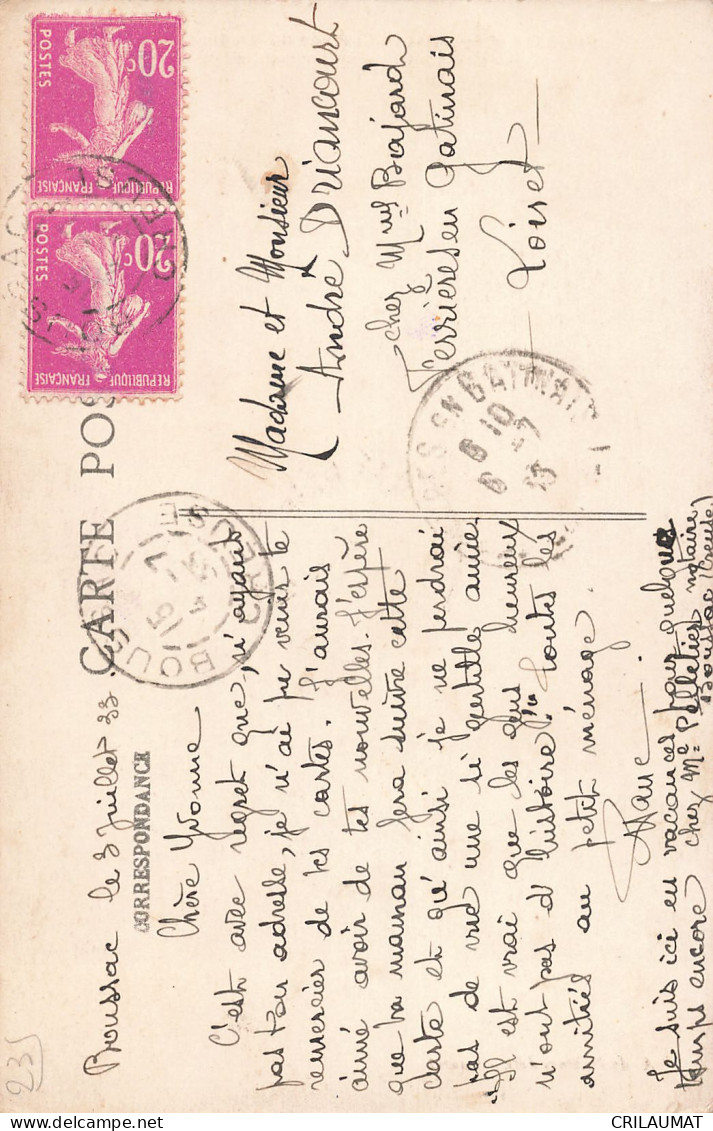 CARTE POS
CORRESPONDANCE
Boussac le 3 Juillet 33
Chère Yvonne
C'est avec regret que, n'ayant
pas ton adresse, je n'ai pu venir te
remercier de tes cartes. J'aurais
aimé avoir de tes nouvelles. J'espère
que ta maman fera suivre cette
carte et qu'ainsi je ne perdrai
pas de vue une si gentille amie
"Il est vrai que les gens heureux
n'ont pas d'histoire!" Toutes les
amitiés au petit ménage.
Je suis ici en vacances pour quelques
temps encore chez Me Pelletier notaire
Boussac (Creuse)
Madame et Monsieur
André DRIANCOURT
chez Mme Bajard
Ferrières en Gatinais
Loiret
20c
POSTES
REPUBLIQUE FRANÇAISE
20c
POSTES
REPUBLIQUE FRANÇAISE
BOUSSAC
CREUSE
EN GATINAIS
235
CRILAUMAT